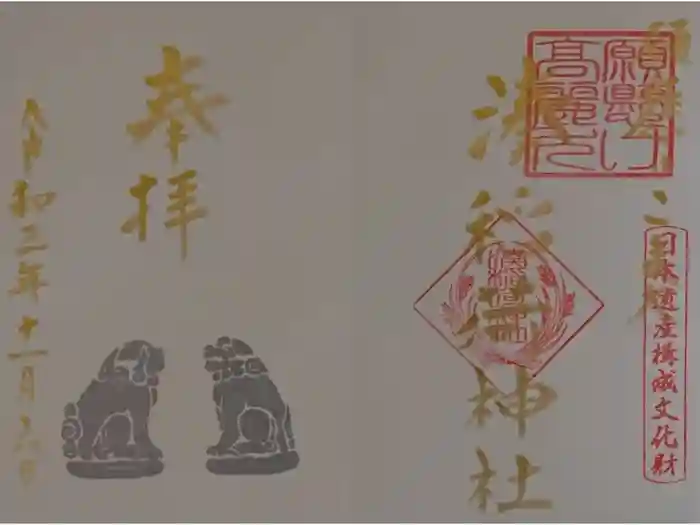 願懸け
高麗犬
日本遺産構成文化財
湊稲荷神社
奉拝
令和三年十一月六日